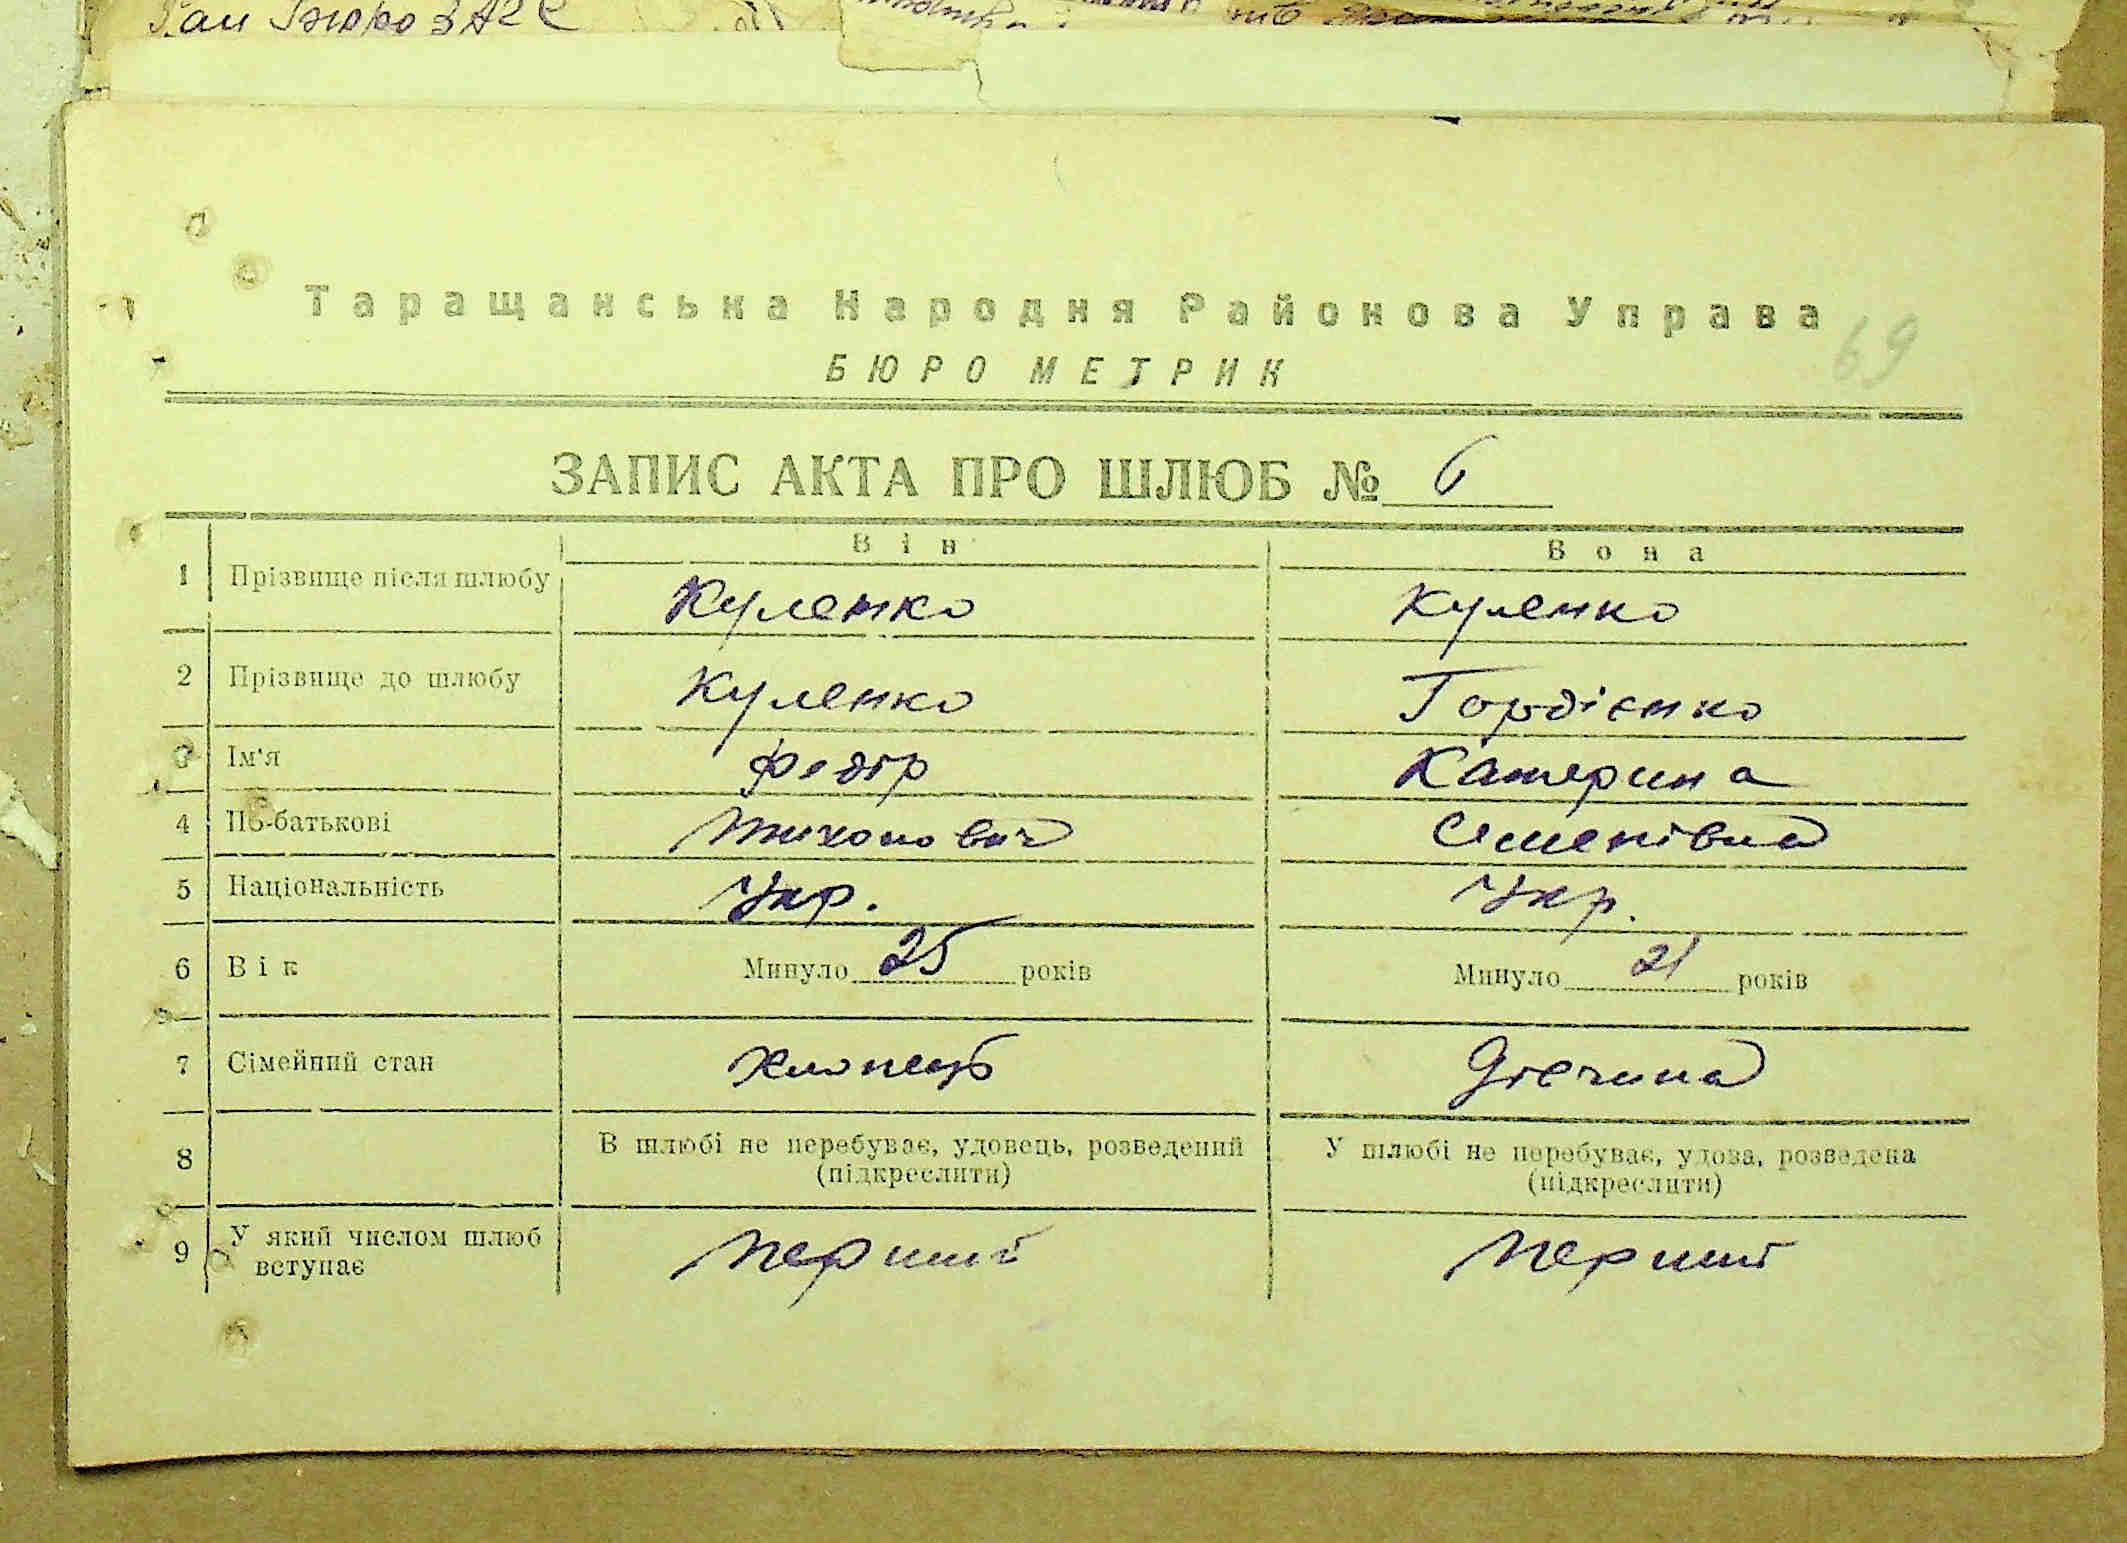 Рай Бюро ЗАГС
Таращанська Народня Районова Управа
69
БЮРО МЕТРИК
ЗАПИС АКТА ПРО ШЛЮБ № 6
Він Вона
1 Прізвище після шлюбу Куленко Куленко
2 Прізвище до шлюбу Куленко Гордієнко
3 Ім'я Федір Катерина
4 По-батькові Тихонович Семенівна
5 Національність Укр. Укр.
6 Вік Минуло 25 років Минуло 21 років
7 Сімейний стан хлопець Дівчина
8 В шлюбі не перебуває, удовець, розведений У шлюбі не перебуває, удова, розведена
(підкреслити) (підкреслити)
9 У який числом шлюб перший перший
вступає